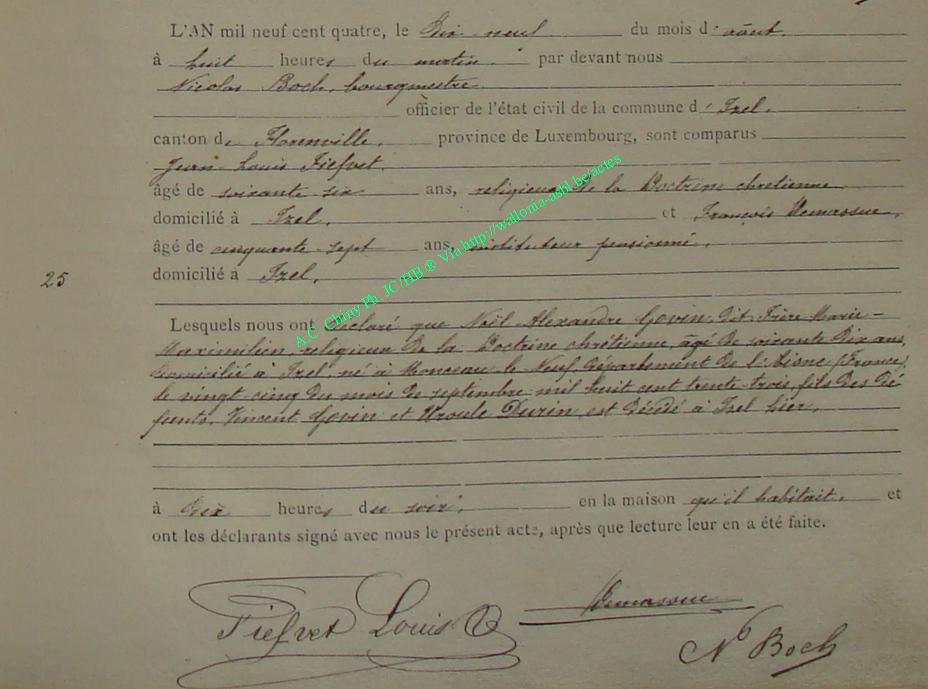 L'AN mil neuf cent quatre, le Dix-neuf du mois d'août.
à huit heures du matin par devant nous
Nicolas Boch, bourgmestre
officier de l'état civil de la commune d'Izel.
canton de Florenville, province de Luxembourg, sont comparus
Jean-Louis Fiefvet
âgé de soixante six ans, religieux de la Doctrine chrétienne
domicilié à Izel, et François Demassue,
âgé de cinquante-sept ans, instituteur pensionné,
25 domicilié à Izel.
Lesquels nous ont déclaré que Noël Alexandre Govin, dit Frère Marie-
Maximilien, religieux de la Doctrine chrétienne, âgé de soixante dix ans,
domicilié à Izel, né à Monceau le Neuf, département de l'Aisne (France)
le vingt cinq du mois de septembre mil huit cent trente-trois, fils des dé-
funts Vincent Govin et Ursule Durin, est décédé à Izel hier,
à dix heures du soir, en la maison qu'il habitait, et
ont les déclarants signé avec nous le présent acte, après que lecture leur en a été faite.
Fiefvet Louis Demassue
N Boch
A.C. Chiny Ph JC/HB © Via http://wallonia-asbl.be/actes